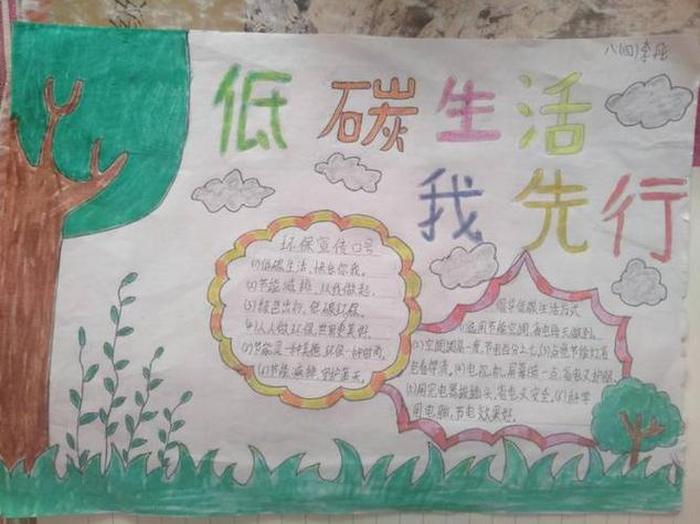 八(四)李
低碳生活
我先行
环保宣传口号
(1)低碳生活,快乐你我。
(2)节能减排,从我做起。
(3)绿色出行,低碳环保。
(4)人人做环保,共用更美好。
(5)节能是一种美德,环保一种时尚。
(6)节能减排,守护蓝天。
低碳生活方式
(1)选用节能空调,省电
(2)空调调高一度,节电百分之七,(3)节能灯
(4)电视机,屏幕暗一点,省电又护眼。
(5)用完电器拔插头,省电又安全,(6)科学
用电脑,节电效果好。